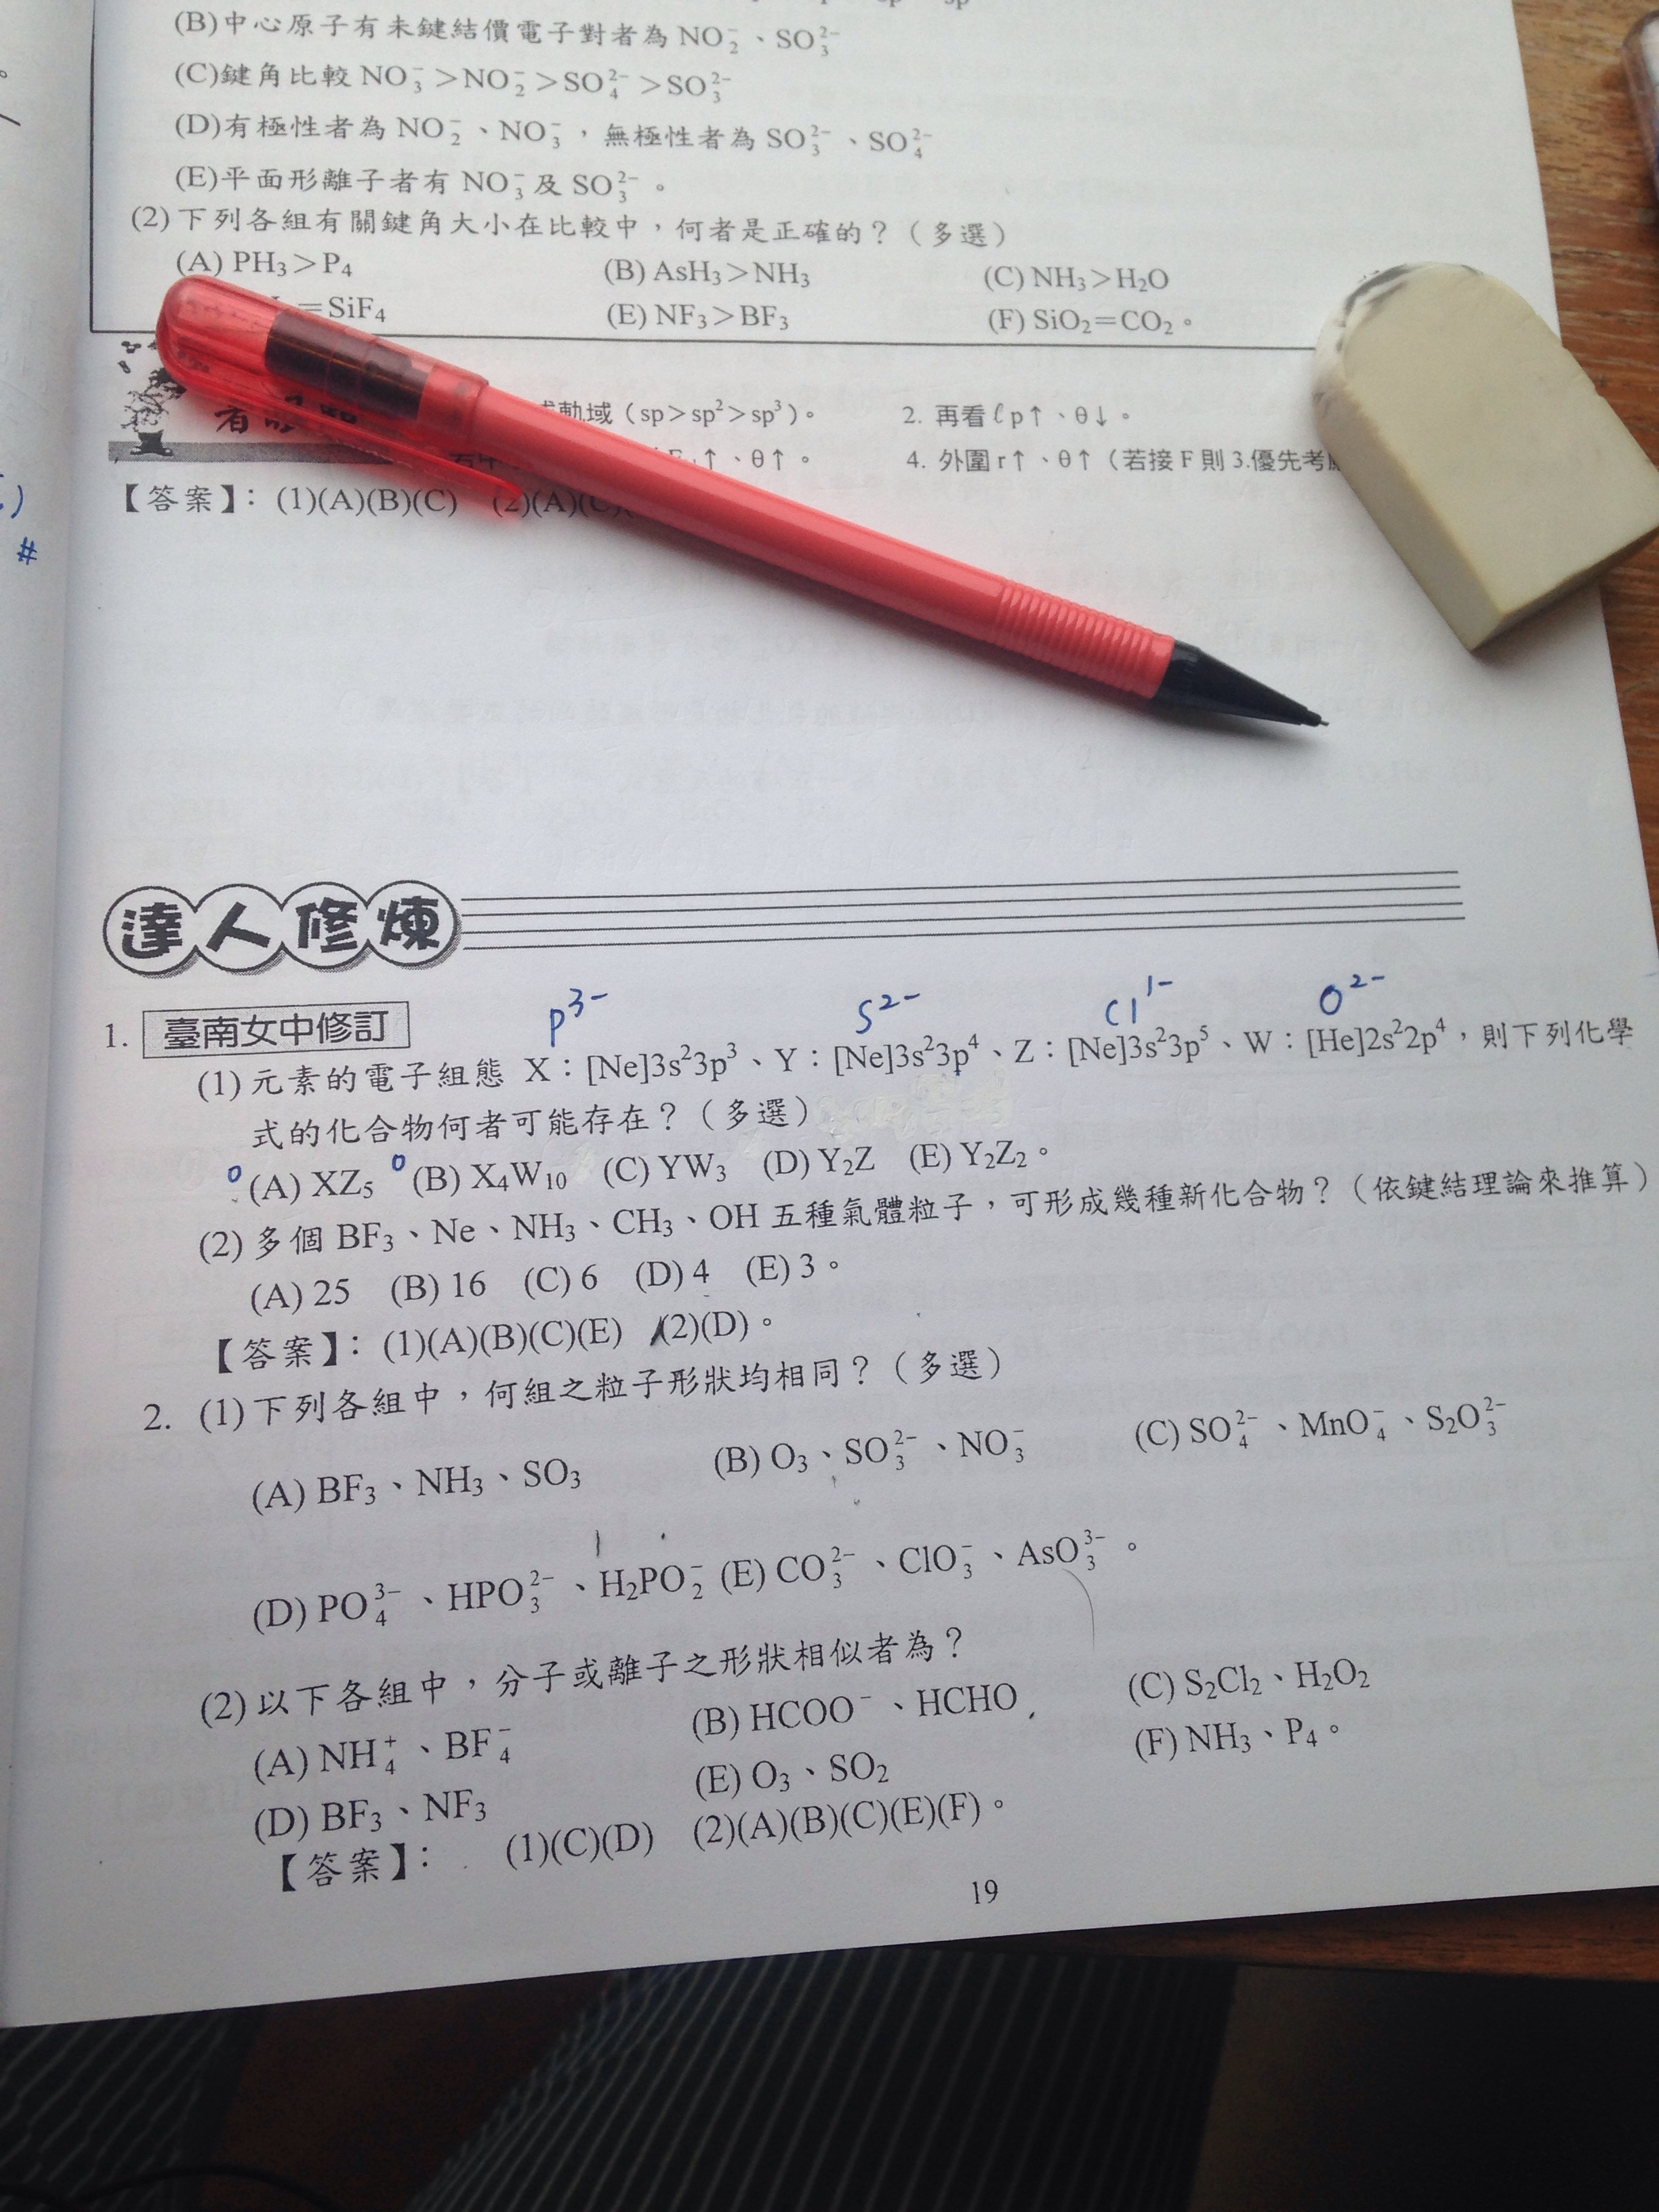 (B)中心原子有未鍵結價電子對者為 NO₂⁻、SO₃²⁻
(C)鍵角比較 NO₃⁻＞NO₂⁻＞SO₄²⁻＞SO₃²⁻
(D)有極性者為 NO₂⁻、NO₃⁻，無極性者為 SO₃²⁻、SO₄²⁻
(E)平面形離子者有 NO₃⁻及 SO₃²⁻。
(2)下列各組有關鍵角大小在比較中，何者是正確的？（多選）
(A) PH₃＞P₄ (B) AsH₃＞NH₃ (C) NH₃＞H₂O
＝SiF₄ (E) NF₃＞BF₃ (F) SiO₂＝CO₂。
軌域（sp＞sp²＞sp³）。 2. 再看 ℓp↑、θ↓。
↑、θ↑。 4. 外圍 r↑、θ↑（若接 F 則 3.優先考
【答案】：(1)(A)(B)(C) (2)(A)(C)
#
達人修煉
P³⁻ S²⁻ Cl¹⁻ O²⁻
1. 臺南女中修訂
(1)元素的電子組態 X：[Ne]3s²3p³、Y：[Ne]3s²3p⁴、Z：[Ne]3s²3p⁵、W：[He]2s²2p⁴，則下列化學
式的化合物何者可能存在？（多選）
(A) XZ₅ (B) X₄W₁₀ (C) YW₃ (D) Y₂Z (E) Y₂Z₂。
(2)多個 BF₃、Ne、NH₃、CH₃、OH 五種氣體粒子，可形成幾種新化合物？（依鍵結理論來推算）
(A) 25 (B) 16 (C) 6 (D) 4 (E) 3。
【答案】：(1)(A)(B)(C)(E) (2)(D)。
2. (1)下列各組中，何組之粒子形狀均相同？（多選）
(A) BF₃、NH₃、SO₃ (B) O₃、SO₃²⁻、NO₃⁻ (C) SO₄²⁻、MnO₄⁻、S₂O₃²⁻
(D) PO₄³⁻、HPO₃²⁻、H₂PO₂⁻ (E) CO₃²⁻、ClO₃⁻、AsO₃³⁻。
(2)以下各組中，分子或離子之形狀相似者為？
(A) NH₄⁺、BF₄⁻ (B) HCOO⁻、HCHO (C) S₂Cl₂、H₂O₂
(D) BF₃、NF₃ (E) O₃、SO₂ (F) NH₃、P₄。
【答案】： (1)(C)(D) (2)(A)(B)(C)(E)(F)。
19